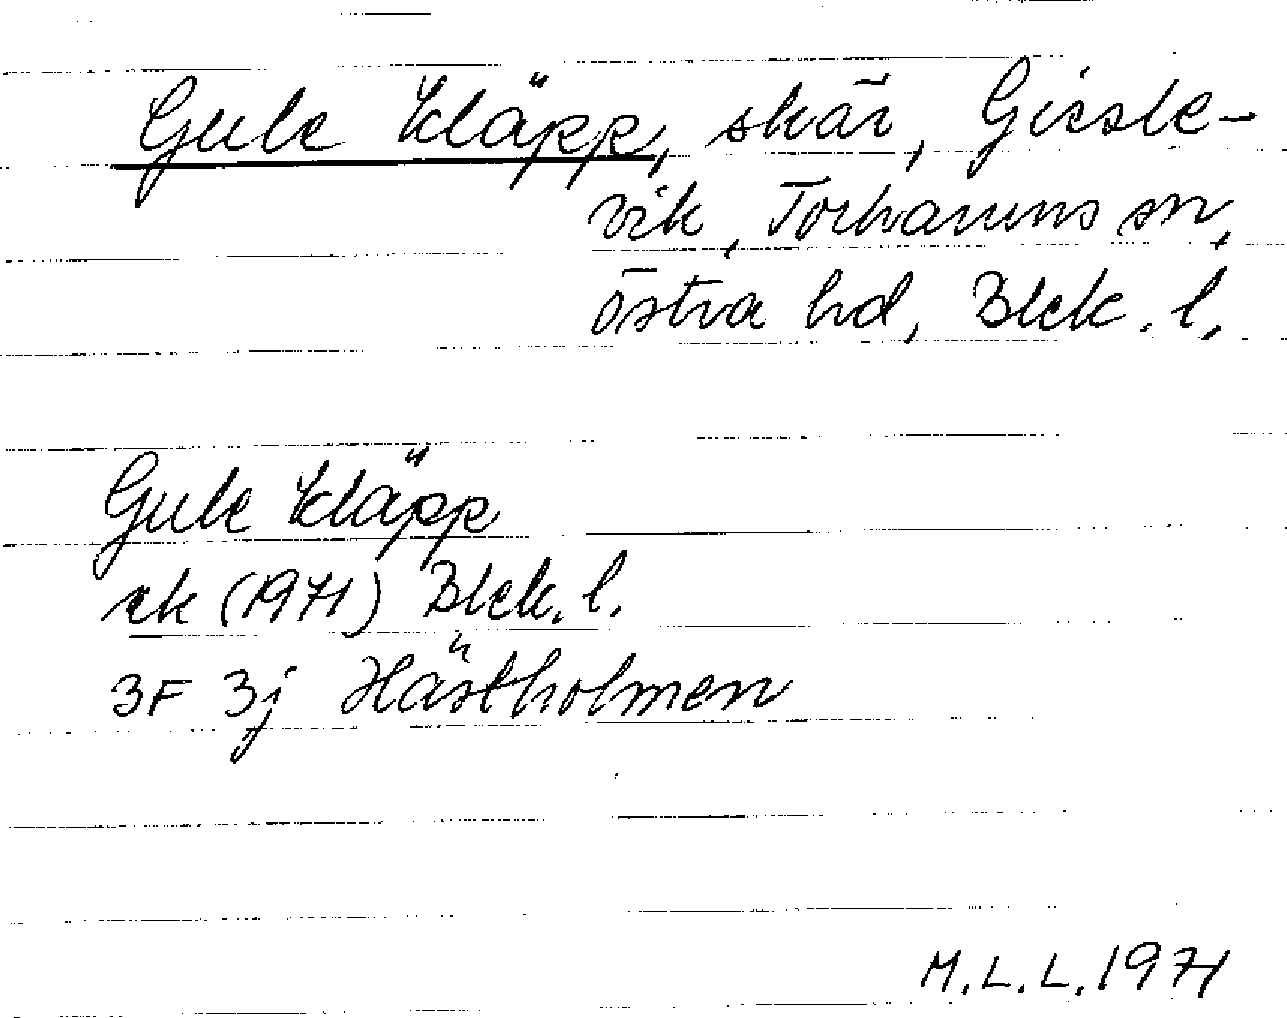 Gule Kläpp, skär, Gissle-
vik, Torhamns sn,
Östra hd, Blek. l.
Gule Kläpp
ek (1971) Blek. l.
3F 3j Hästholmen
M.L.L. 1971